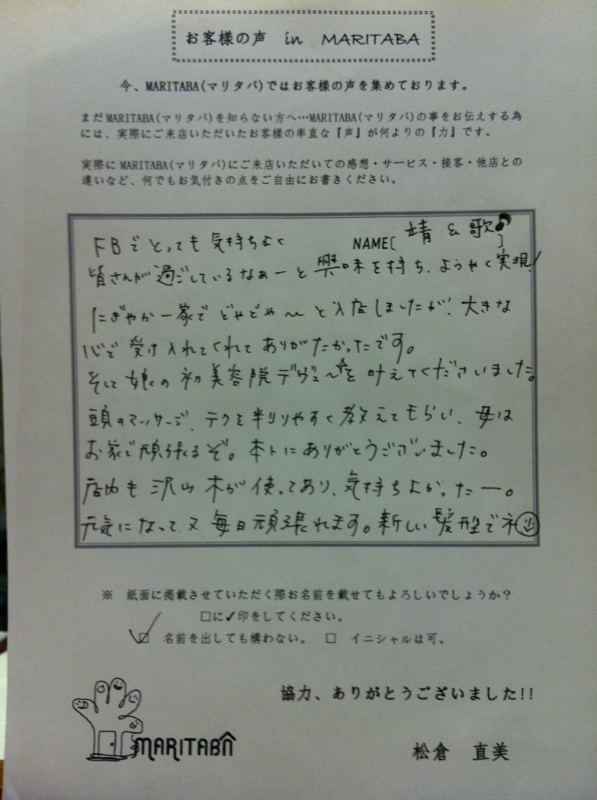 お客様の声 in MARITABA
今、MARITABA(マリタバ)ではお客様の声を集めております。
まだMARITABA(マリタバ)を知らない方へ…MARITABA(マリタバ)の事をお伝えする為
には、実際にご来店いただいたお客様の率直な『声』が何よりの『力』です。
実際にMARITABA(マリタバ)にご来店いただいての感想・サービス・接客・他店との
違いなど、何でもお気付きの点をご自由にお書きください。
NAME[ 靖 & 歌♪ ]
FBでとっても気持ちよく
皆さんが過ごしているなぁーと興味を持ち、ようやく実現!
にぎやか一家でどやどや〜と入店しましたが、大きな
心で受け入れてくれてありがたかったです。
そして娘の初美容院デヴュ〜☆を叶えてくださいました。
頭のマッサージ、テクを判りやすく教えてもらい、母は
お家で頑張るぞ。本トにありがとうございました。
店内も沢山木が使ってあり、気持ちよかったー。
元気になって又毎日頑張れます。新しい髪型でネ☺
※ 紙面に掲載させていただく際お名前を載せてもよろしいでしょうか?
□に✓印をしてください。
☑ 名前を出しても構わない。 □ イニシャルは可。
協力、ありがとうございました!!
MARITABA
松倉 直美